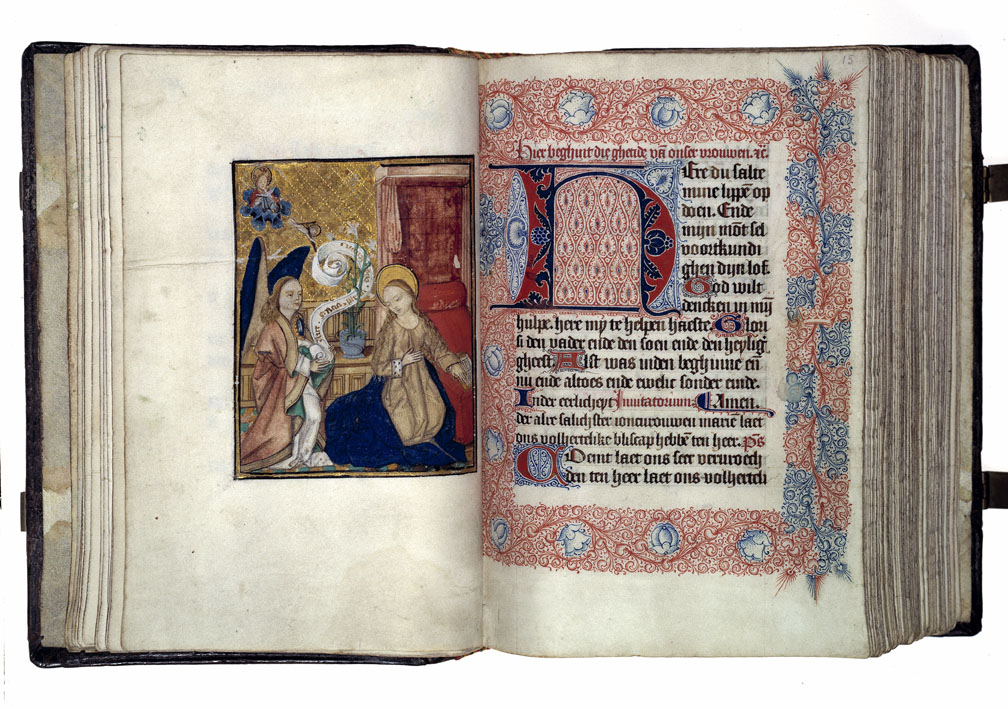 15
Hier beghint die ghetide vā onser vrouwen. ⁊c̄.
HEre du salte
mine lyppē op
doen. Ende
mijn mōt sel
voortkundi
ghen dijn lof.
God wilt
dencken in mij
hulpe. here my te helpen haeste. Glori
si den vader ende den soen ende den heyliḡ
gheest. Alst was inden beghinne en̄
nu ende altoes ende ewelic sonder einde.
Inder eerlicheyt Inuitatorium. Amen.
der alre salichster ioncurouwen marien̄ laet
ons volhertelike bliscap hebbē ten heer. ps̄
Coemt laet ons seer veruroech
den ten heer laet ons volherteli